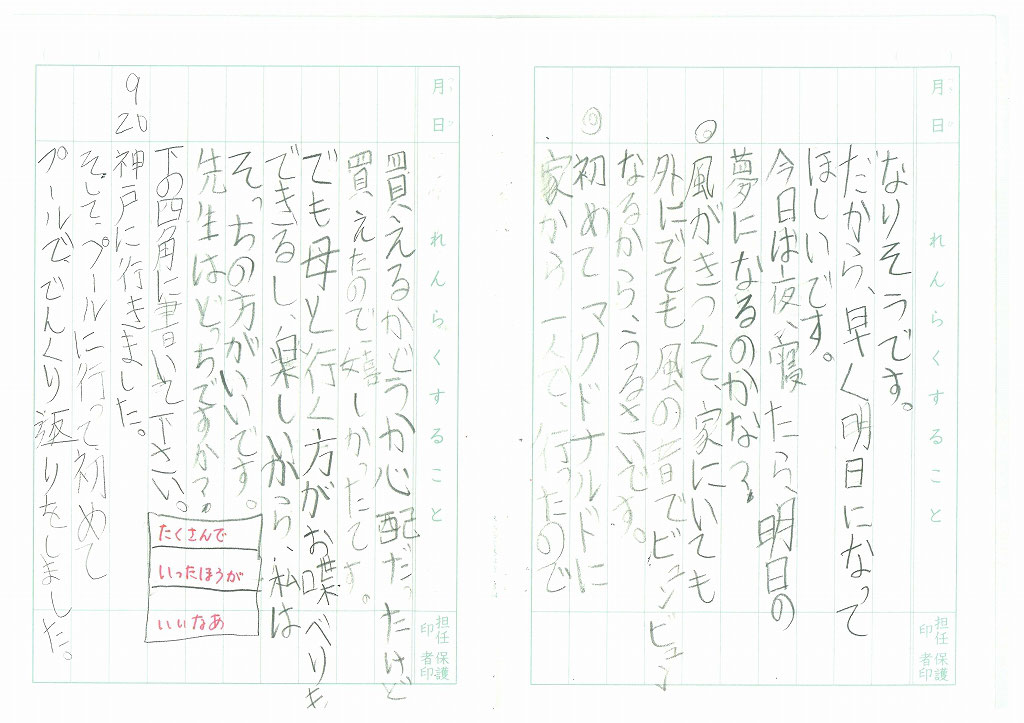 月 日
れんらくすること
担任印
保護者印
なりそうです。
だから、早く明日になって
ほしいです。
今日は夜、寝たら、明日の
夢になるのかな？
◎
風がきつくて、家にいても
外にでても風の音でビュンビュン
なるから、うるさいです。
◎
初めてマクドナルドに
家から一人で、行ったので
月 日
れんらくすること
担任印
保護者印
買えるかどうか心配だったけど
買えたので嬉しかったです。
でも母と行く方がお喋べりも
できるし、楽しいから、私は
そっちの方がいいです。
先生はどっちですか？
下の四角に書いて下さい。
たくさんで
いったほうが
いいなあ
9 20
神戸に行きました。
そしてプールに行って初めて
プールででんくり返りをしました。